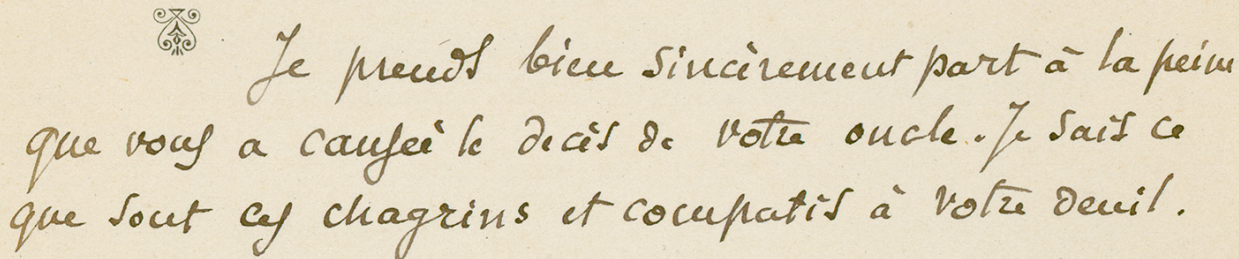 Je prends bien sincèrement part à la peine
que vous a causée le décès de votre oncle. Je sais ce
que sont ces chagrins et compatis à votre deuil.